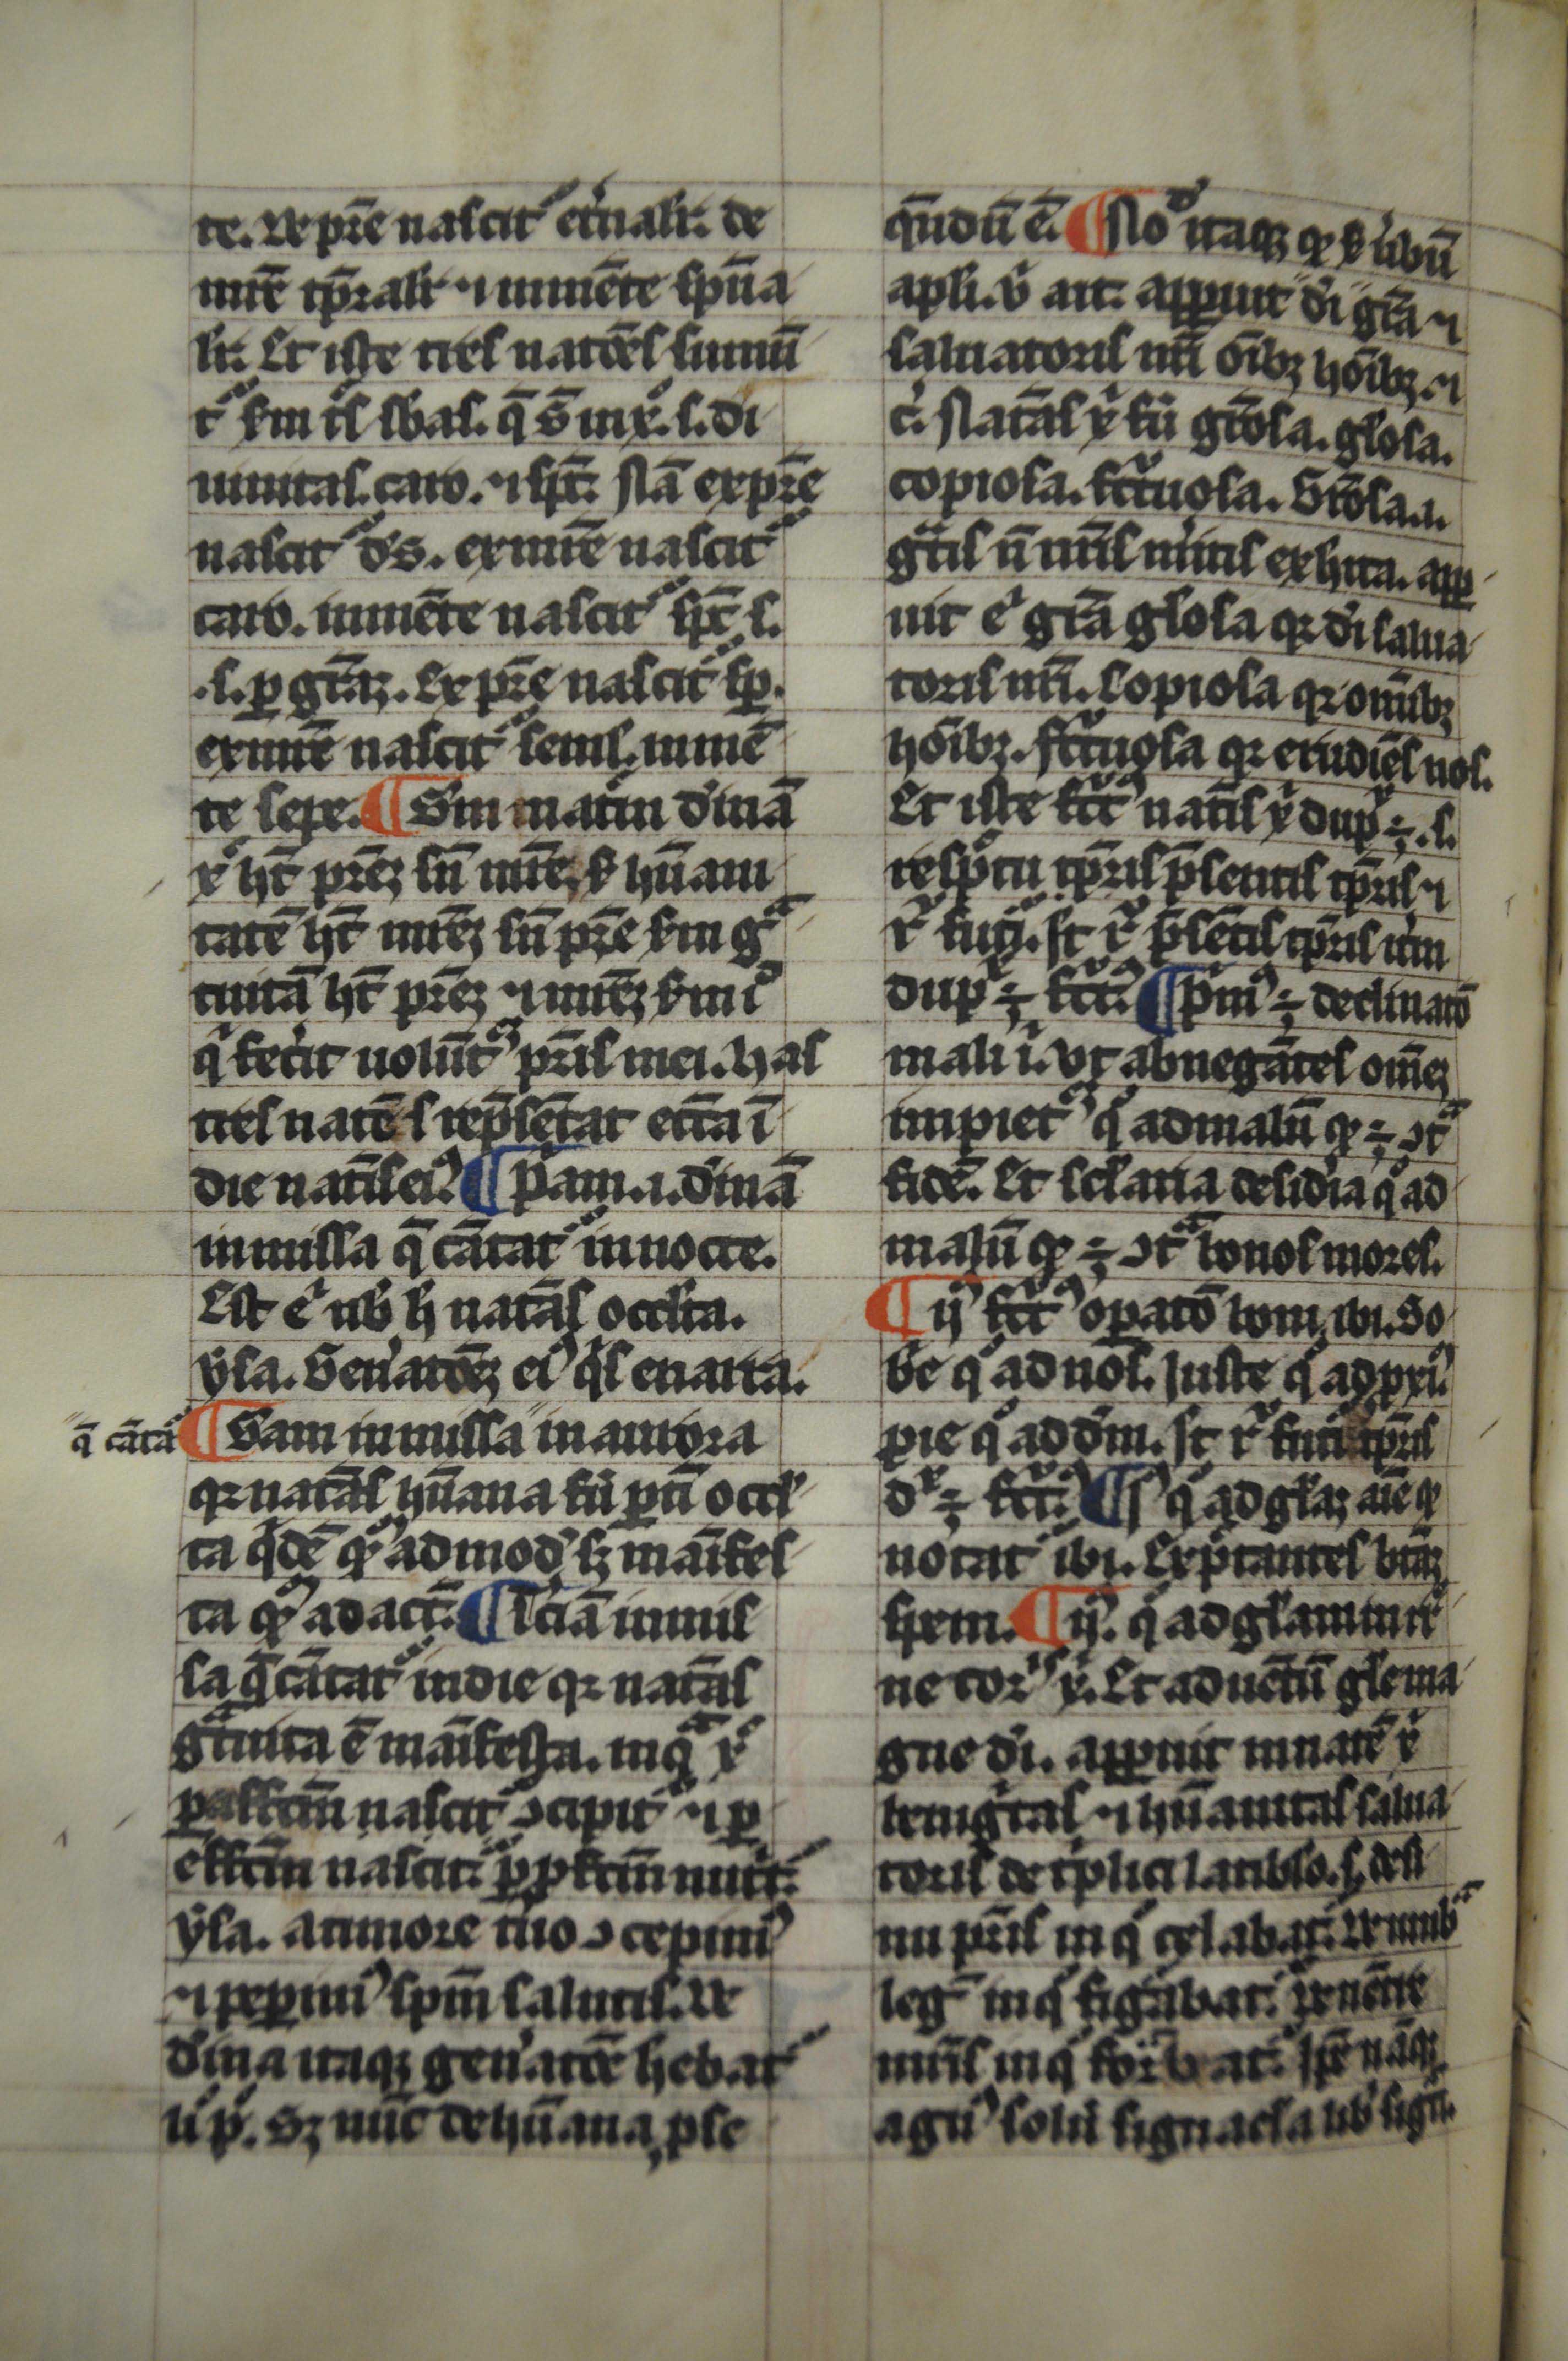 te. De pr̄e nascit᷑ et̾nalit̾. de
mr̄e tp̄ralit̾ ⁊ in mēte sp̄ua
lit̾. Et iste tres natōes sumū
t᷑ s̄m t̾s sb̄as. q̄ s̄ in xp̄o. s. di
uinitas. caro. ⁊ sp̄c. Nā ex pr̄e
nascit᷑ d̾s. ex mr̄e nascit᷑
caro. in mēte nascit᷑ sp̄c s.
.s. ꝑ gr̄aꝫ. Ex pr̄e nascit᷑ sp̄.
ex mr̄e nascit᷑ semel. in mē
te sepe. ¶ S̄m natām diuinā
xp̄s hꝫ pr̄eꝫ sn̄ mr̄e. s̄ hūani
tatē hꝫ mr̄eꝫ sn̄ pr̄e s̄m gͣ
tuitā hꝫ pr̄eꝫ ⁊ mr̄eꝫ s̄m i᷑
qͥ fec̾it uolūt᷑ pr̄is mei. has
tres natōes rep̄sētat ecc̄a ī
die natal̾ ei᷒ ¶ P̾mam .i. diuinā
in missa q̄ cātat᷑ in nocte.
Est eͥ nob̾ h̾ natās occl̾ta.
ysa. Gen̾atōeꝫ ei᷒ qͥs enarra.
q̄ cātat᷑
¶ S̄am in missa in aurora
qꝛ natās hūana fū ꝑtī occl̾
ta qͥdē qͦ ad modū sꝫ māifes
ta qͦ ad actū. ¶ T̾ciā in mis
sa q̄ cātat᷑ in die qꝛ natās
gͣtuita ē māifesta. in qͣ xp̄s
ꝑ affcm̄ nascit᷑ ɔcipit᷑ ⁊ ꝑ
effcm̄ nascit᷑. ꝑ ꝓfectū nutrit᷑.
ysa. A timore tuo ɔcepim᷒
⁊ peꝑim᷒ spm̄ salutis. De
diuina itaqꝫ gen̾atōe hebat᷑
ū p̾. Sꝫ nūc de hūana, ꝓse
qn̄dū ē. ¶ No᷑ itaqꝫ qͦ s̄ u̾bū
apl̾i. u̾ ait. apparuit d̾i gr̄a ⁊
saluatoris nr̄i oībꝫ hoībꝫ. ⁊
c̾. Natās xp̄i fū grōsa. gl̾osa.
copiosa. fc̄tuosa. Gr̄osa .i.
gr̄tis ū nr̄is m̾itis exhita. appa
ruit eͥ gr̄a gl̾osa qꝛ d̾i salua
toris nr̄i. Copiosa qꝛ omībꝫ
hoībꝫ. fc̄tuosa qꝛ erudiēs nos.
Et iste fc̄t᷒ natīs xp̄i dup̾ ÷ .s.
resp̄tu tp̄ris p̄sentis tp̄ris ⁊
rͣ fut̾i. sꝫ rͣ p̄sētis tp̄ris it̾m
dup̾ ÷ fc̄t᷒. ¶ P̾m᷒ ÷ declinatō
mali .i. Vt abnegātes om̄eꝫ
impiet᷒ qͦ ad malū qͦ ÷ ɔtͣ
fidē. Et sc̄laria desid̾ia qͦ ad
malū qͦ ÷ ɔtͣ bonos mores.
¶ ij᷒ fc̄t᷒ oꝑatō boni ibi. So
b̾e qͦ ad nos. Juste qͦ ad ꝓxī.
pie qͦ ad dm̄. sꝫ rͣ futi tp̄ris
d᷑ ÷ fc̄t᷒. ¶ j᷒ qͦ ad gl̾aꝫ aīe qͦ
notat᷑ ibi. Expectantes b̄tāꝫ
spem. ¶ ij᷒. qͦ ad gl̾am inuiā
ne cor᷑ xp̄i. Et aduētū gl̾e ma
gne d̾i. apparuit in natē xp̄i
benigtas ⁊ hūanitas salua
toris de tp̾lici latib̾lo. s. de si
nu pr̄is in qͦ celabat᷑. De umbͣ
leg̾ in qͦ figͣbat᷑. De uētre
mr̄is in qͦ form̄bat᷑. Ip̄e nāqꝫ
agn᷒ soluit signacl̾a lib̾ sign̄.